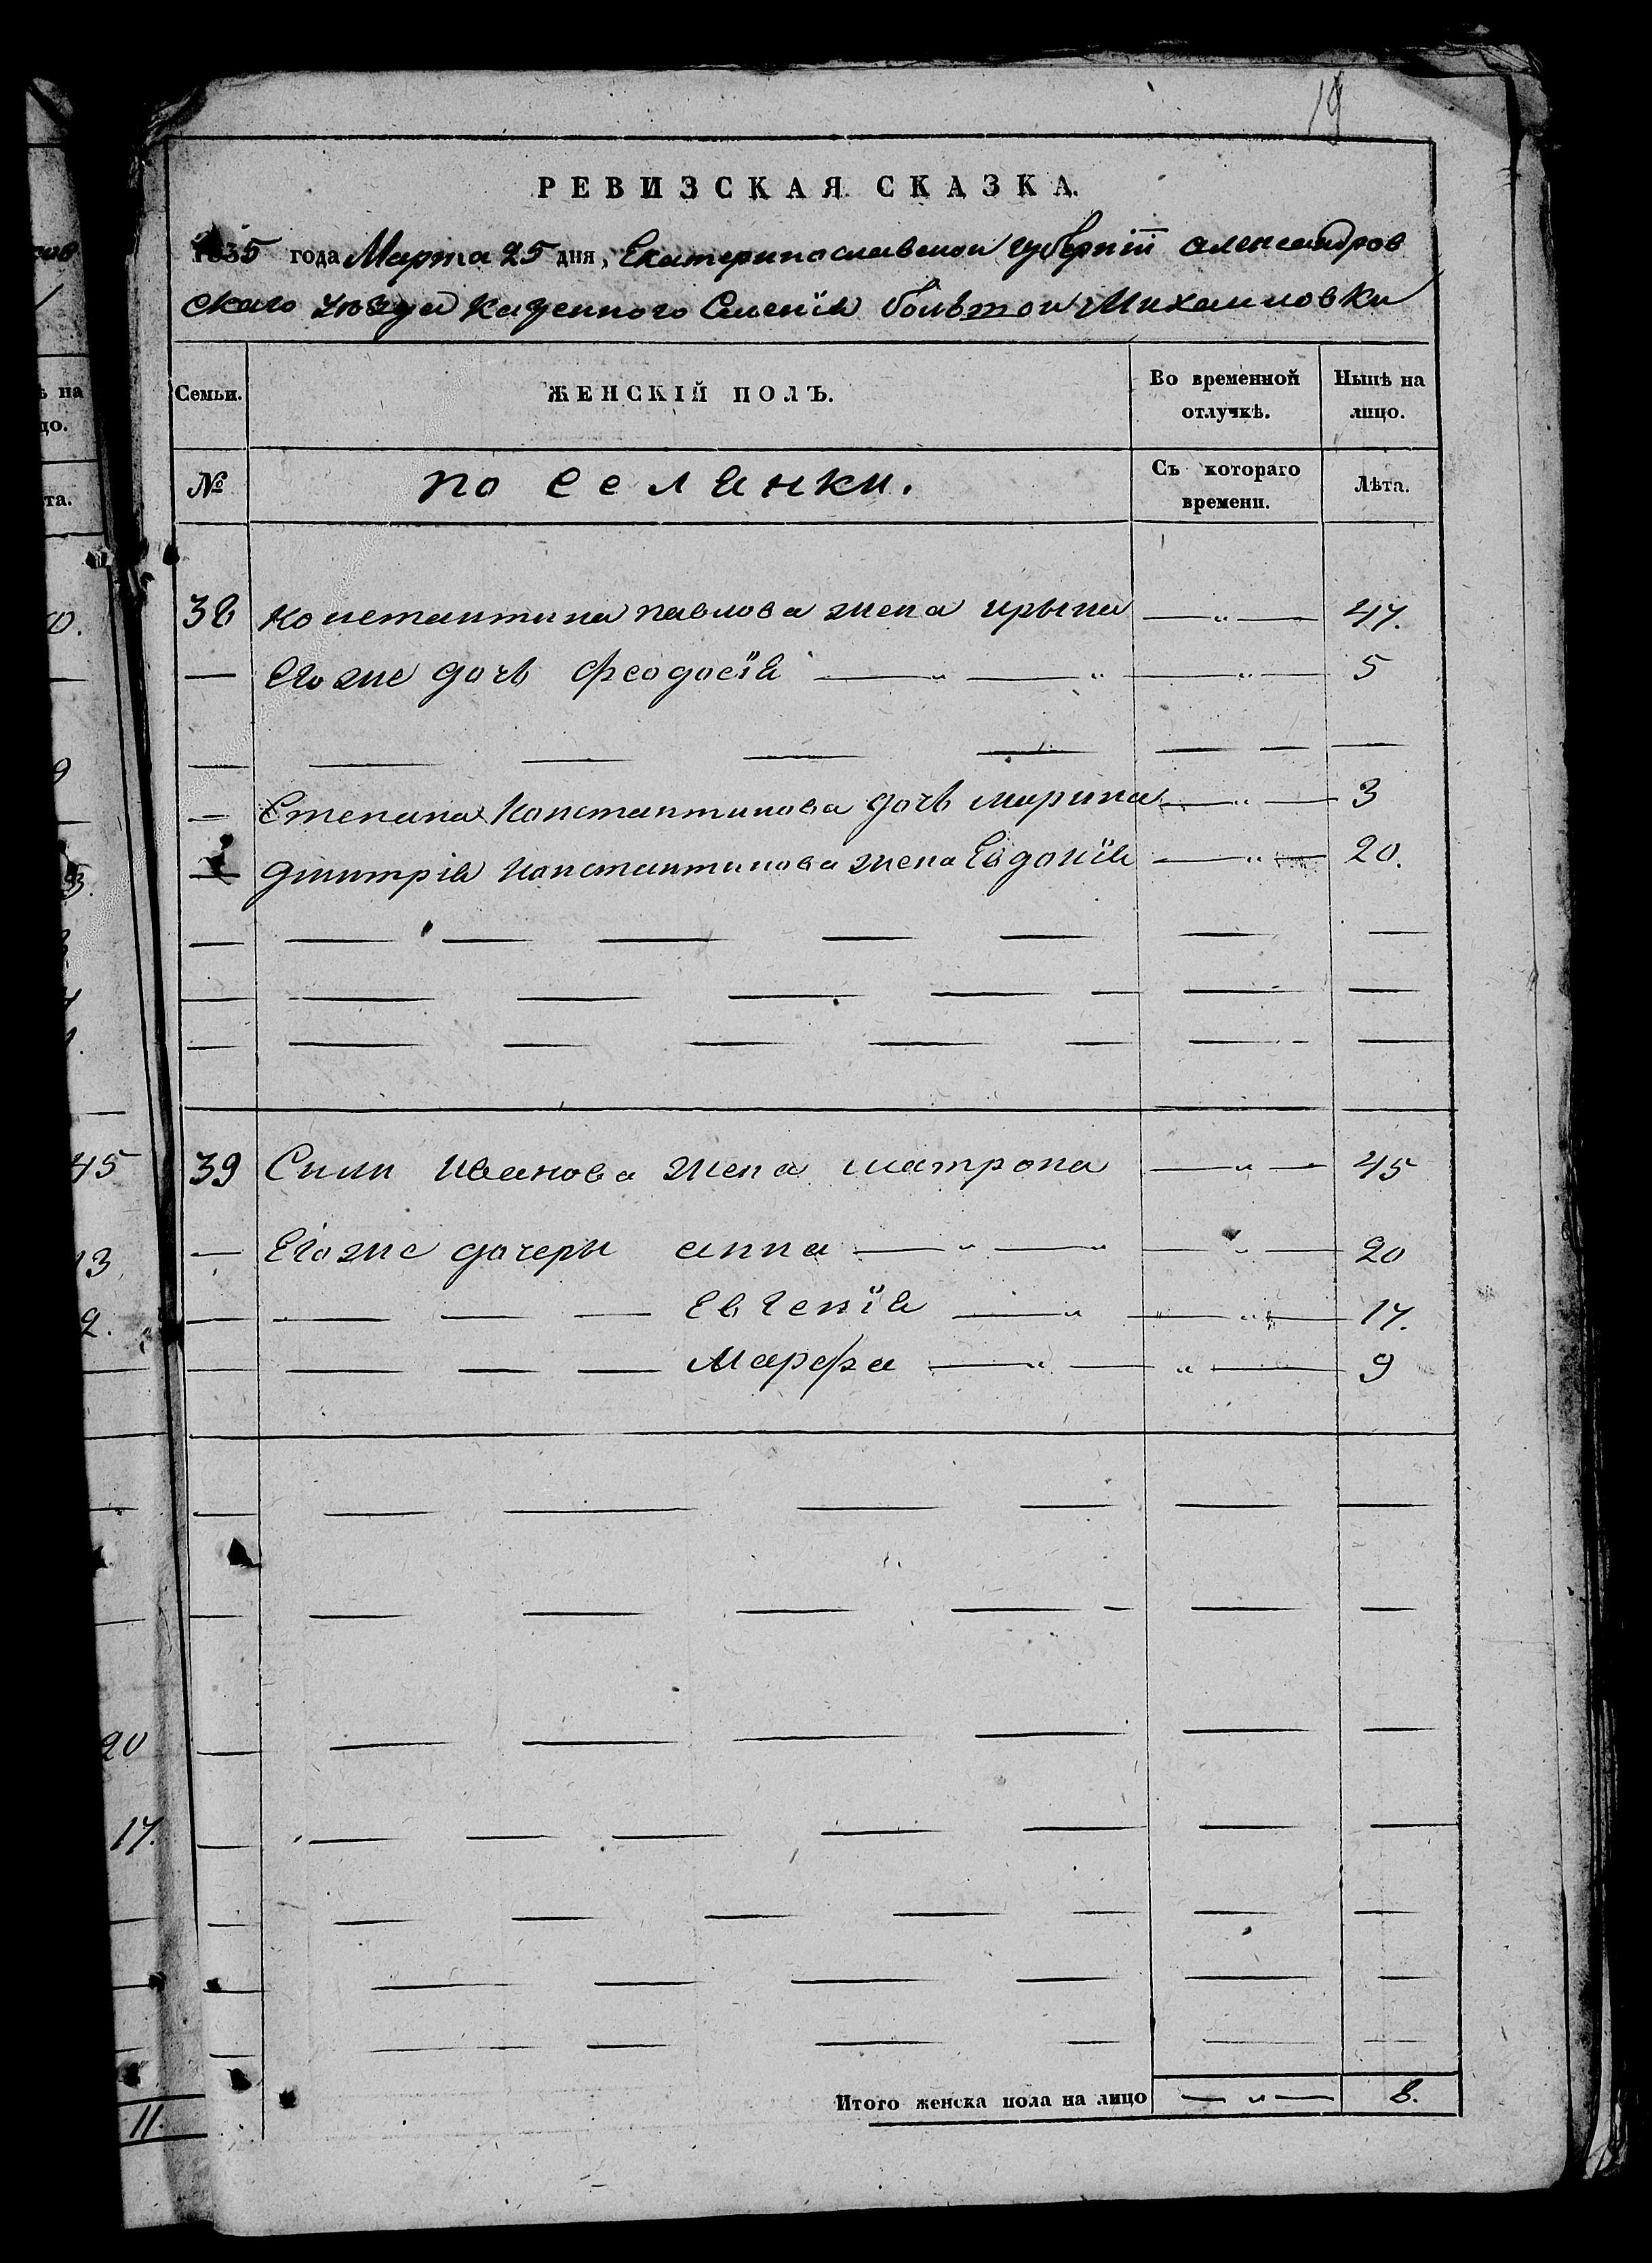 19
РЕВИЗСКАЯ СКАЗКА.
1835 года Марта 25 дня, Екатеринославской губернїи александров
скаго уѣзда казенного Селенїя больтой Михаиловки
Семьи. ЖЕНСКІЙ ПОЛЪ. Во временной отлучкѣ. Нынѣ на лицо.
№ поселянки. Съ котораго времени. Лѣта.
38 Константина павлова жена ирына — „ — 47.
— Егоже дочь феодосїя — „ — „ — „ — 5
— Степана Константинова дочь марина — „ — 3
— дмитрія константинова жена Евдокїя — „ — 20.
39 Силы Иванова жена матрона — „ — 45
— Егоже дочеры анна — „ — „ — „ — 20
— — — — Евгенїя — „ — „ — „ — 17.
— — — — Марфа — „ — „ — 9
Итого женска пола на лицо — „ — 8.
на
цо.
та.
9
45
13
2.
20
17.
11.